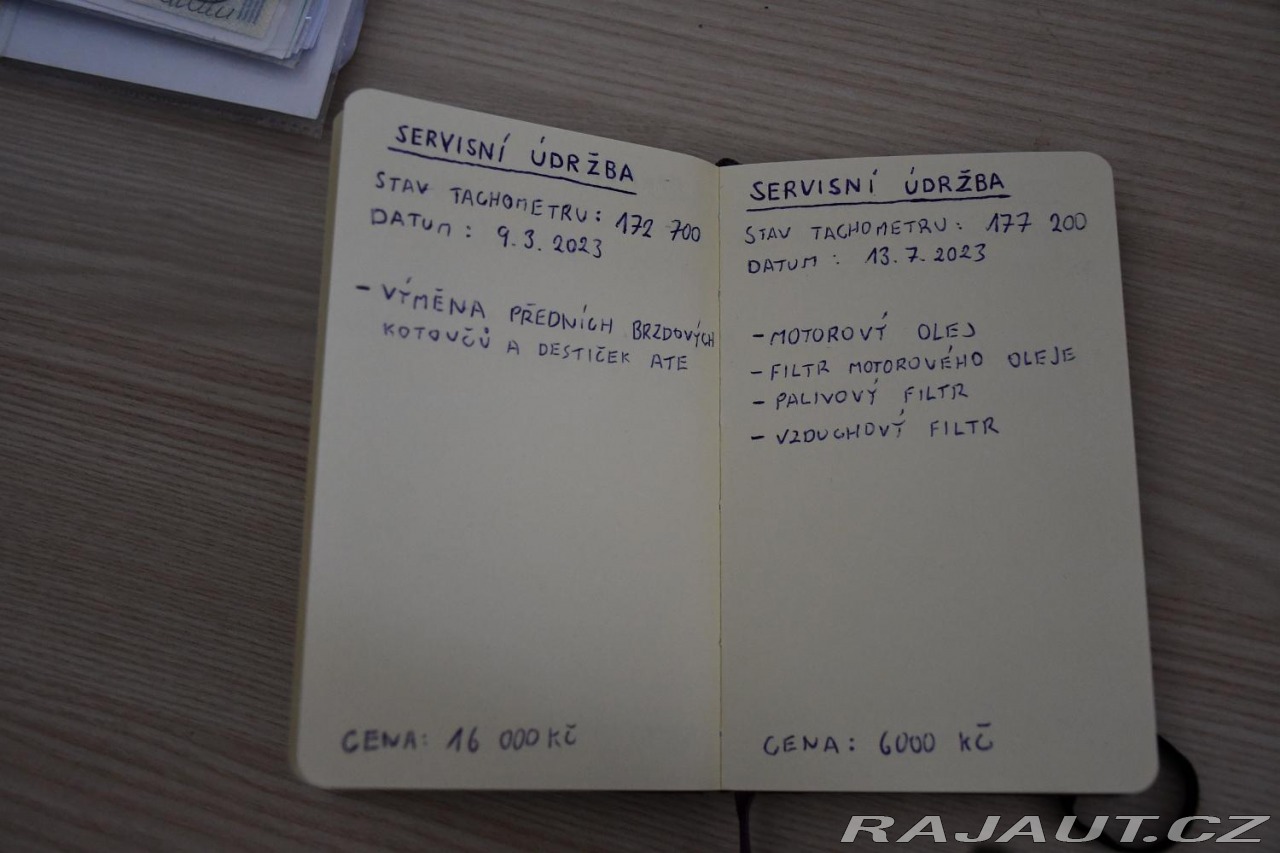 SERVISNÍ ÚDRŽBA
STAV TACHOMETRU: 172 700
DATUM: 9.3.2023
- VÝMĚNA PŘEDNÍCH BRZDOVÝCH
KOTOUČŮ A DESTIČEK ATE
CENA: 16 000 KČ
SERVISNÍ ÚDRŽBA
STAV TACHOMETRU: 177 200
DATUM: 13.7.2023
- MOTOROVÝ OLEJ
- FILTR MOTOROVÉHO OLEJE
- PALIVOVÝ FILTR
- VZDUCHOVÝ FILTR
CENA: 6000 KČ
RAJAUT.CZ